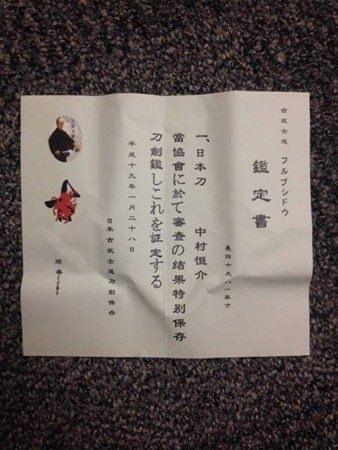 古武士道 フルブシドウ
鑑定書
長四十点八一英寸
一、日本刀 中村恒介
當協會に於て審査の结果特別保存
刀劍鑑しこれを証定する
平成十九年一月二十八日
日本古武士道刀剣保存